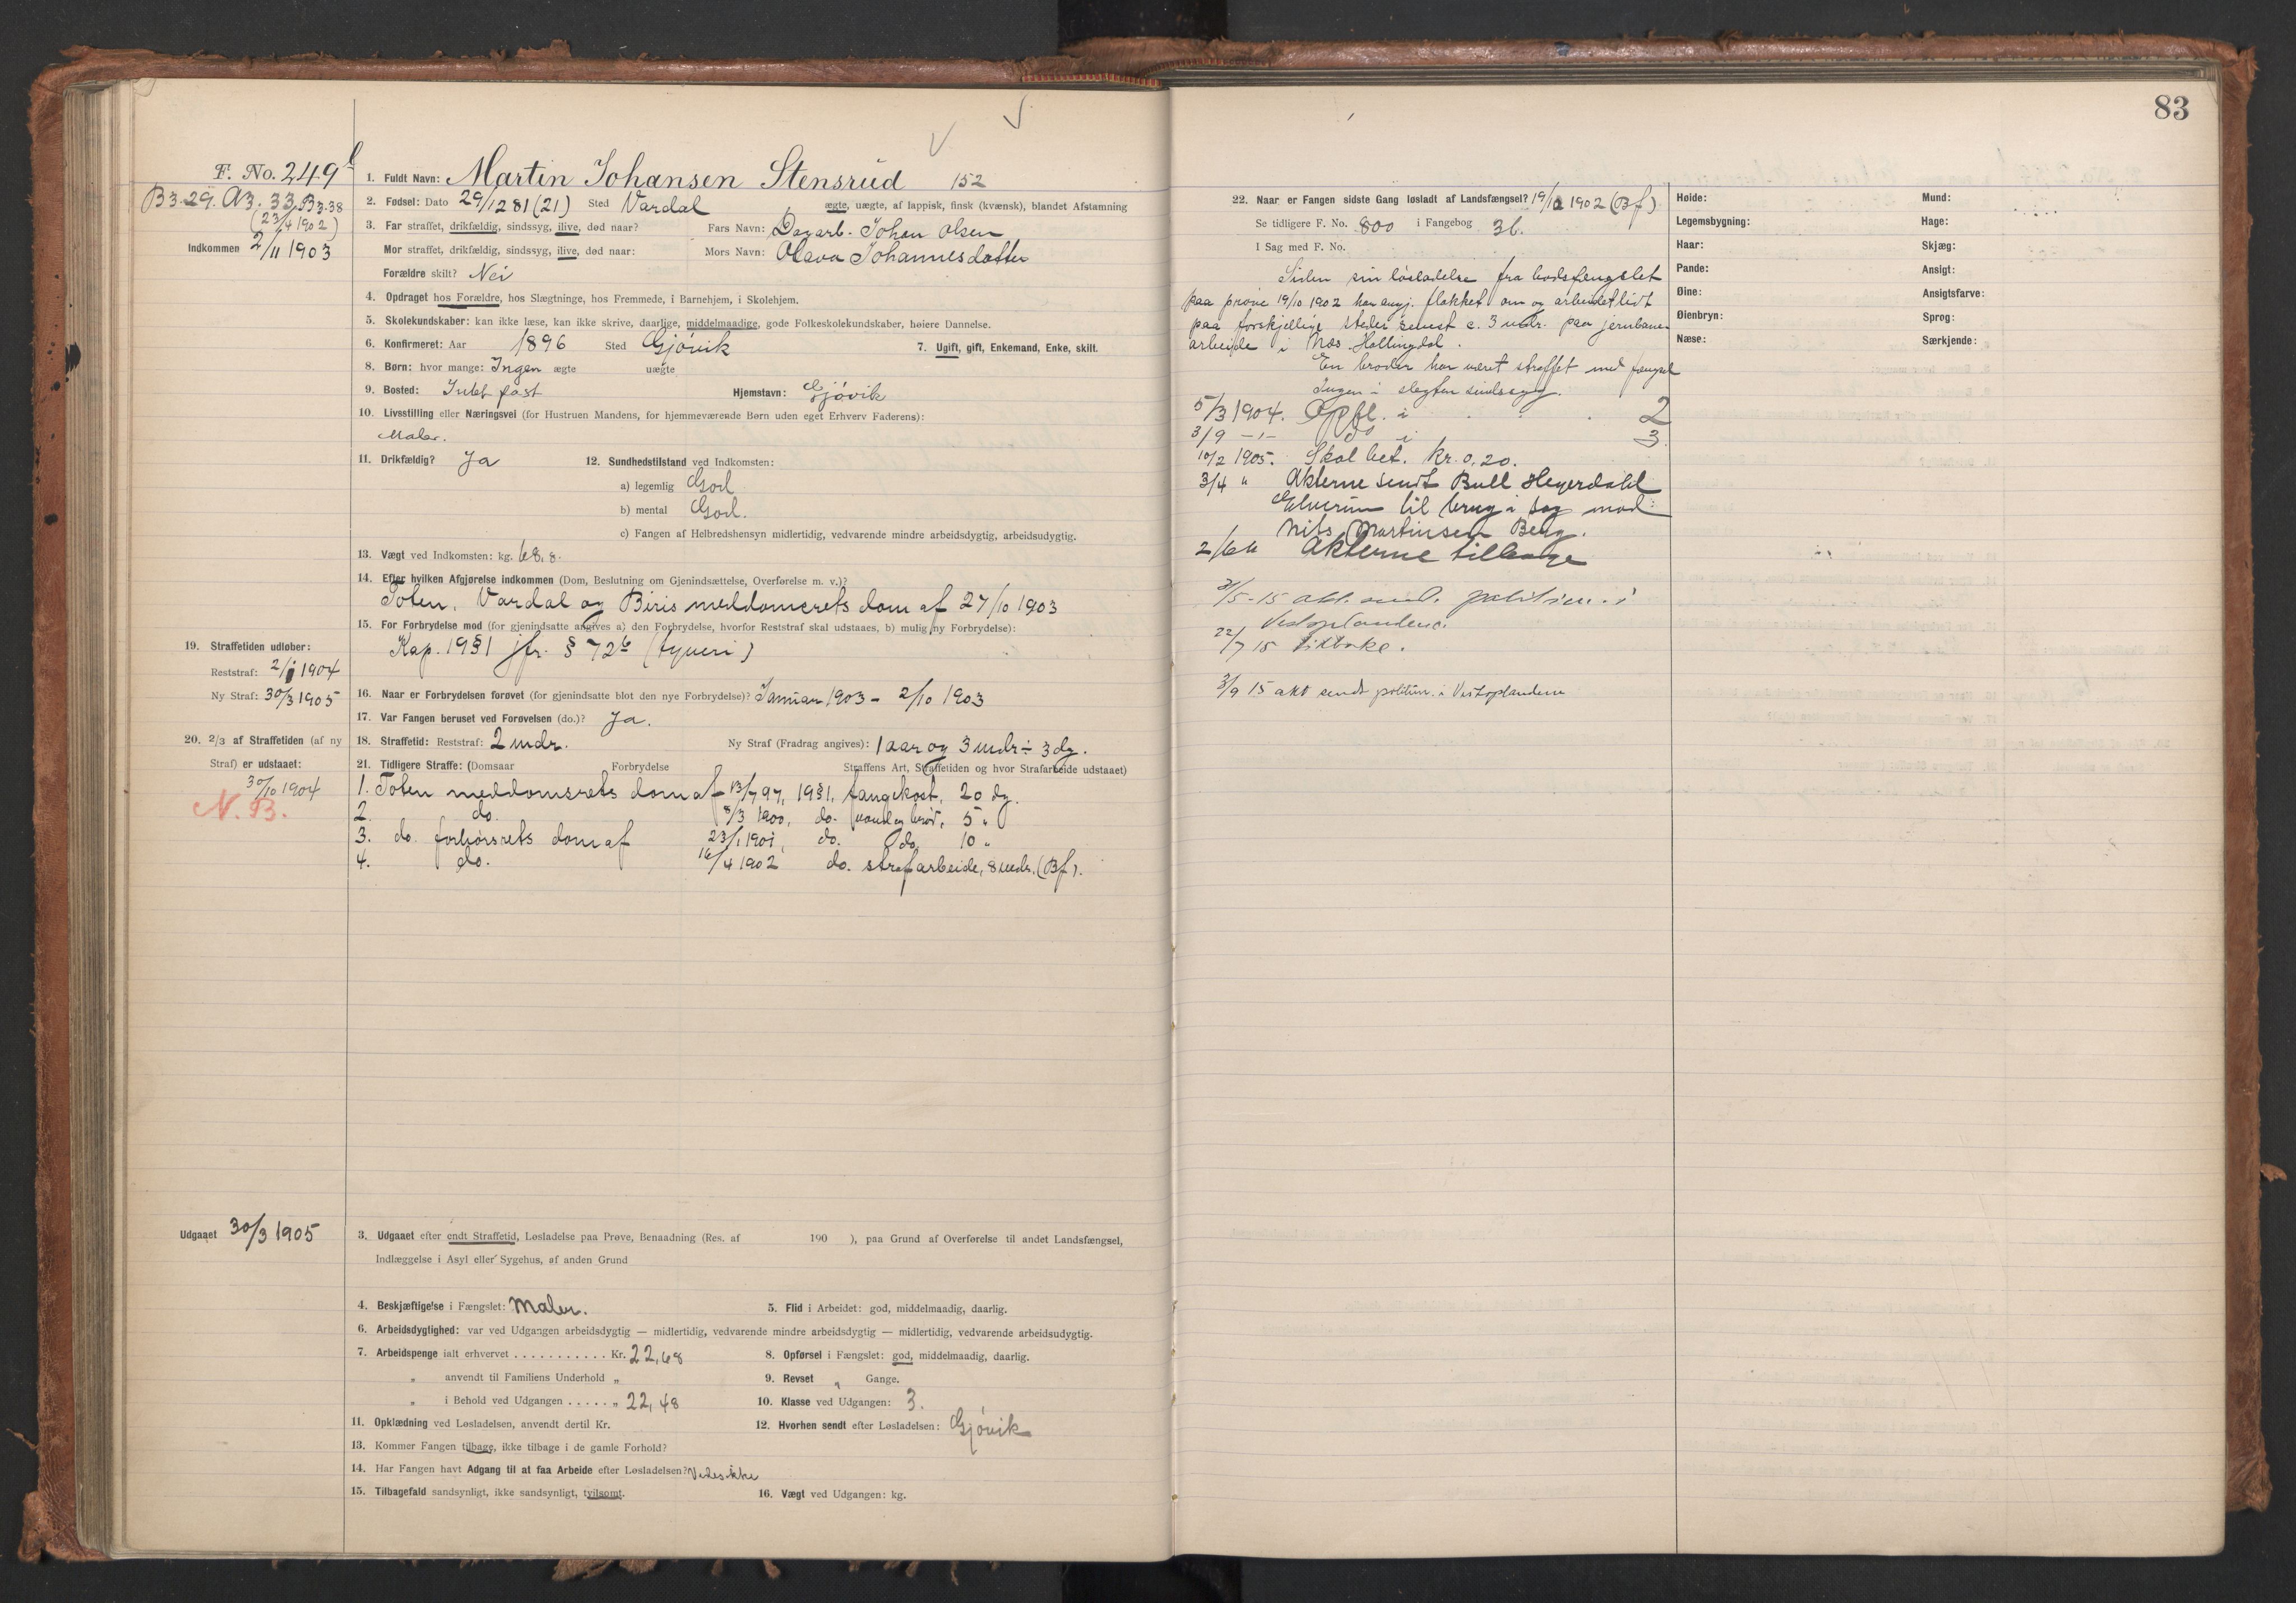 83
F. No. 249
B3.29. A3. 33, B3.38
(23/4 1902)
Indkommen 2/11 1903
1. Fuldt Navn: Martin Johansen Stensrud 152
2. Fødsel: Dato 29/12 81 (21) Sted Vardal ægte, uægte, af lappisk, finsk (kvænsk), blandet Afstamning
3. Far straffet, drikfældig, sindssyg, ilive, død naar? Fars Navn: Dagarb. Johan Olsen
Mor straffet, drikfældig, sindssyg, ilive, død naar: Mors Navn: Olava Johannesdatter
Forældre skilt? Nei
4. Opdraget hos Forældre, hos Slægtninge, hos Fremmede, i Barnehjem, i Skolehjem.
5. Skolekundskaber: kan ikke læse, kan ikke skrive, daarlige, middelmaadige, gode Folkeskolekundskaber, høiere Dannelse.
6. Konfirmeret: Aar 1896 Sted Gjøvik 7. Ugift, gift, Enkemand, Enke, skilt.
8. Børn: hvor mange: Ingen ægte uægte
9. Bosted: Intet fast Hjemstavn: Gjøvik
10. Livsstilling eller Næringsvei (for Hustruen Mandens, for hjemmeværende Børn uden eget Erhverv Faderens):
Maler.
11. Drikfældig? Ja 12. Sundhedstilstand ved Indkomsten:
a) legemlig God
b) mental God.
c) Fangen af Helbredshensyn midlertidig, vedvarende mindre arbeidsdygtig, arbeidsudygtig.
13. Vægt ved Indkomsten: kg. 68,8.
14. Efter hvilken Afgjørelse indkommen (Dom, Beslutning om Gjenindsættelse, Overførelse m. v.)?
Toten, Vardal og Biris meddomsrets dom af 27/10 1903
15. For Forbrydelse mod (for gjenindsatte angives a) den Forbrydelse, hvorfor Reststraf skal udstaaes, b) mulig ny Forbrydelse):
Kap. 19 § 1 jfr. § 72 b (tyveri)
19. Straffetiden udløber:
Reststraf: 2/1 1904
Ny Straf: 30/3 1905
16. Naar er Forbrydelsen forøvet (for gjenindsatte blot den nye Forbrydelse)? Januar 1903 - 2/10 1903
17. Var Fangen beruset ved Forøvelsen (do.)? Ja.
20. 2/3 af Straffetiden (af ny
Straf) er udstaaet:
30/10 1904
N. B.
18. Straffetid: Reststraf: 2 mdr. Ny Straf (Fradrag angives): 1 aar og 3 mdr ÷ 3 dg.
21. Tidligere Straffe: (Domsaar Forbrydelse Straffens Art, Straffetiden og hvor Strafarbeide udstaaet)
1. Toten meddomsrets dom af 13/7 97, 19 § 1, fangekost, 20 dg.
2. do. 8/3 1900, do. vand og brød, 5 "
3. do. forhørsrets dom af 23/1 1901, do. do. 10 "
4. do. 16/4 1902 do. strafarbeide, 8 mdr. (Bf).
Udgaaet 30/3 1905
3. Udgaaet efter endt Straffetid, Løsladelse paa Prøve, Benaadning (Res. af 190 ), paa Grund af Overførelse til andet Landsfængsel,
Indlæggelse i Asyl eller Sygehus, af anden Grund
4. Beskjæftigelse i Fængslet: Maler. 5. Flid i Arbeidet: god, middelmaadig, daarlig.
6. Arbeidsdygtighed: var ved Udgangen arbeidsdygtig — midlertidig, vedvarende mindre arbeidsdygtig — midlertidig, vedvarende arbeidsudygtig.
7. Arbeidspenge ialt erhvervet . . . . . . . . . . . Kr. 22,68 8. Opførsel i Fængslet: god, middelmaadig, daarlig.
" anvendt til Familiens Underhold " 9. Revset " Gange.
" i Behold ved Udgangen . . . . . " 22,48 10. Klasse ved Udgangen: 3.
11. Opklædning ved Løsladelsen, anvendt dertil Kr. 12. Hvorhen sendt efter Løsladelsen: Gjøvik
13. Kommer Fangen tilbage, ikke tilbage i de gamle Forhold?
14. Har Fangen havt Adgang til at faa Arbeide efter Løsladelsen? Vides ikke
15. Tilbagefald sandsynligt, ikke sandsynligt, tvilsomt. 16. Vægt ved Udgangen: kg.
22. Naar er Fangen sidste Gang løsladt af Landsfængsel? 19/10 1902 (Bf)
Se tidligere F. No. 800 i Fangebog 36.
I Sag med F. No.
Siden sin løsladelse fra bodsfengslet
paa prøve 19/10 1902 har angj. flakket om og arbeidet lidt
paa forskjellige steder senest c. 3 mdr. paa jernbane
arbeide i Næs Hallingdal.
En broder har været straffet med fængsel
Ingen i slegten sindssyg.
5/3 1904. Opfl. i 2
3/9 -"- do i 3.
10/2 1905. Skal bet. kr. 0,20.
3/4 " Akterne sendt Bull Heyerdahl
Elverum til brug i sag mod:
Nils Martinsen Berg.
2/6 " Akterne tilbage
31/5-15 akt. sendt politim. i
Vestoplandene.
22/7 15 tilbake.
3/9 15 akt sendt politim. i Vestoplandene
Høide:
Legemsbygning:
Haar:
Pande:
Øine:
Øienbryn:
Næse:
Mund:
Hage:
Skjæg:
Ansigt:
Ansigtsfarve:
Sprog:
Særkjende: